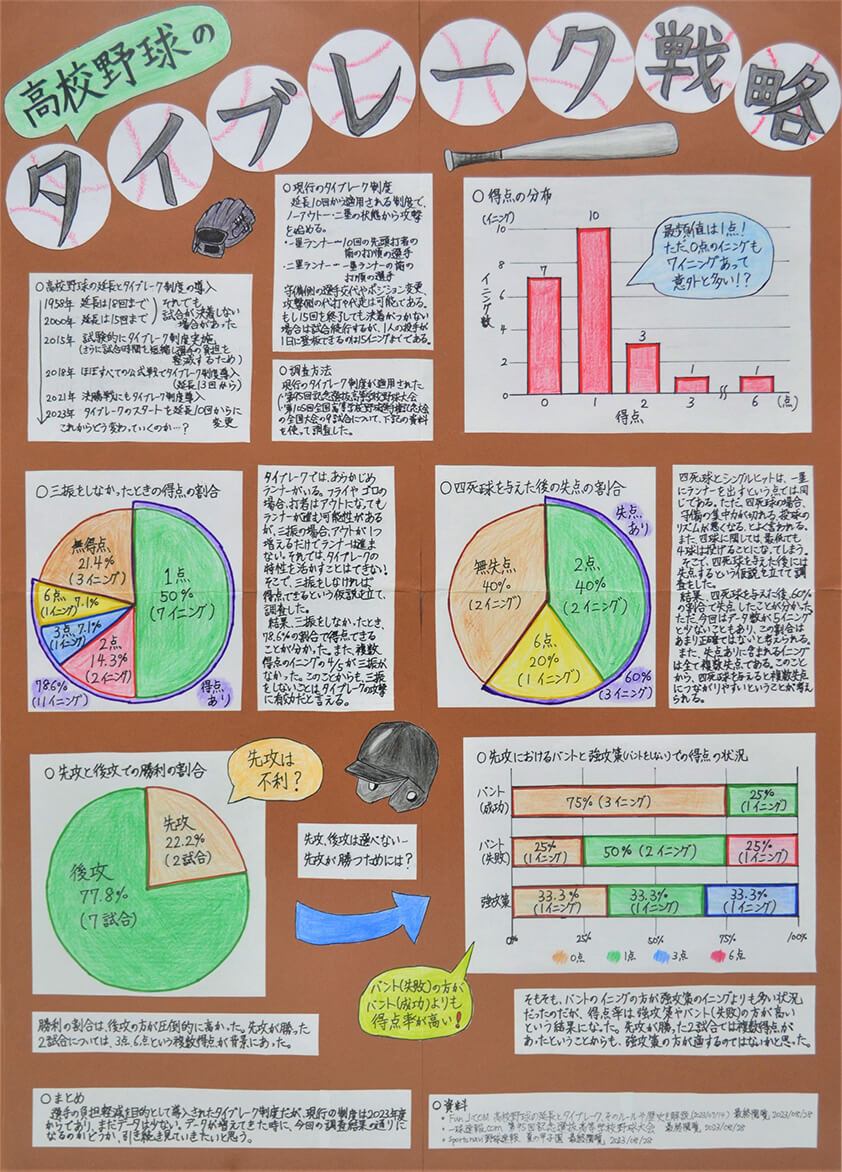 高校野球の
タイブレーク戦略
○高校野球の延長とタイブレーク制度の導入
1958年 延長は18回まで
2000年 延長は15回まで
それでも
試合が決着しない
場合があった
2015年 試験的にタイブレーク制度実施
(さらに試合時間を短縮し選手の負担を
軽減するため)
2018年 ほぼすべての公式戦でタイブレーク制度導入
(延長13回から)
2021年 決勝戦にもタイブレーク制度導入
2023年 タイブレークのスタートも延長10回からに
変更
これからどう変わっていくのか…?
○現行のタイブレーク制度
延長10回から適用される制度で、
ノーアウト一・二塁の状態から攻撃
を始める。
・一塁ランナー…10回の先頭打者の
前の打順の選手
・二塁ランナー…一塁ランナーの前の
打順の選手
守備側の選手交代やポジション変更、
攻撃側の代打や代走は可能である。
もし15回を終了しても決着がつかない
場合は試合続行するが、1人の投手が
1日に登板できるのは15イニングまでである。
○調査方法
現行のタイブレーク制度が適用された
・第95回記念選抜高等学校野球大会
・第105回全国高等学校野球選手権記念大会
の全国大会の9試合について、下記の資料
を使って調査した。
○得点の分布
(イニング)
イニング数
10
8
6
4
2
0
7
10
3
1
1
0
1
2
3
6
(点)
得点
最頻値は1点!
ただ、0点のイニングも
7イニングあって
意外と多い!?
○三振をしなかったときの得点の割合
無得点
21.4%
(3イニング)
1点
50%
(7イニング)
6点
(1イニング)
7.1%
3点
(1イニング)
7.1%
2点
14.3%
(2イニング)
78.6%
(11イニング)
得点
あり
タイブレークでは、あらかじめ
ランナーがいる。フライやゴロの
場合、打者はアウトになっても
ランナーが進む可能性がある
が、三振の場合、アウトが1つ
増えるだけでランナーは進ま
ない。それでは、タイブレークの
特性を活かすことはできない。
そこで、三振をしなければ
得点できるという仮説を立て、
調査した。
結果、三振をしなかったとき
78.6%の割合で得点できる
ことが分かった。また、複数
得点のイニングの4/5が三振が
なかった。このことからも、三振
をしないことはタイブレークの攻撃
に有効だと言える。
○四死球を与えた後の失点の割合
失点
あり
無失点
40%
(2イニング)
2点
40%
(2イニング)
6点
20%
(1イニング)
60%
(3イニング)
四死球とシングルヒットは、一塁
にランナーを出すという点では同
じである。ただ、四死球の場合、
守備の集中力が切れる、投球の
リズムが悪くなる、とよく言われる。
また、四球に関しては最低でも
4球は投げることになってしまう。
そこで、四死球を与えた後には
失点するという仮説を立てて調
査をした。
結果、四死球を与えた後、60%
の割合で失点したことが分かった。
ただ、今回はデータ数が5イニン
グと少ないこともあり、この割合は
あまり正確ではないと考えられる。
また、失点ありに含まれるイニング
は全て複数失点である。このこと
から、四死球を与えると複数失点
につながりやすいということが考え
られる。
○先攻と後攻での勝利の割合
先攻は
不利?
先攻
22.2%
(2試合)
後攻
77.8%
(7試合)
先攻、後攻は選べない…
先攻が勝つためには?
勝利の割合は、後攻の方が圧倒的に高かった。先攻が勝った
2試合については、3点、6点という複数得点が背景にあった。
○先攻におけるバントと強攻策(バントをしない)での得点の状況
バント
(成功)
75% (3イニング)
25%
(1イニング)
バント
(失敗)
25%
(1イニング)
50% (2イニング)
25%
(1イニング)
強攻策
33.3%
(1イニング)
33.3%
(1イニング)
33.3%
(1イニング)
0%
25%
50%
75%
100%
0点
1点
3点
6点
バント(失敗)の方が
バント(成功)よりも
得点率が高い!
そもそも、バントのイニングの方が強攻策のイニングよりも多い状況
だったのだが、得点率は強攻策やバント(失敗)の方が高い
という結果になった。先攻が勝った2試合では複数得点が
あったということからも、強攻策の方が適するのではないかと思った。
○まとめ
選手の負担軽減を目的として導入されたタイブレーク制度だが、現行の制度は2023年度
からであり、まだデータは少ない。データが増えてきた時に、今回の調査結果の通りに
なるのかどうか、引き続き見ていきたいと思う。
○資料
・Fun J:COM 高校野球の延長とタイブレーク、そのルールや歴史を解説(2023/07/14) 最終閲覧 2023/08/28
・一球速報.com 第95回記念選抜高等学校野球大会 最終閲覧 2023/08/28
・Sportsnavi 野球速報 夏の甲子園 最終閲覧 2023/08/28